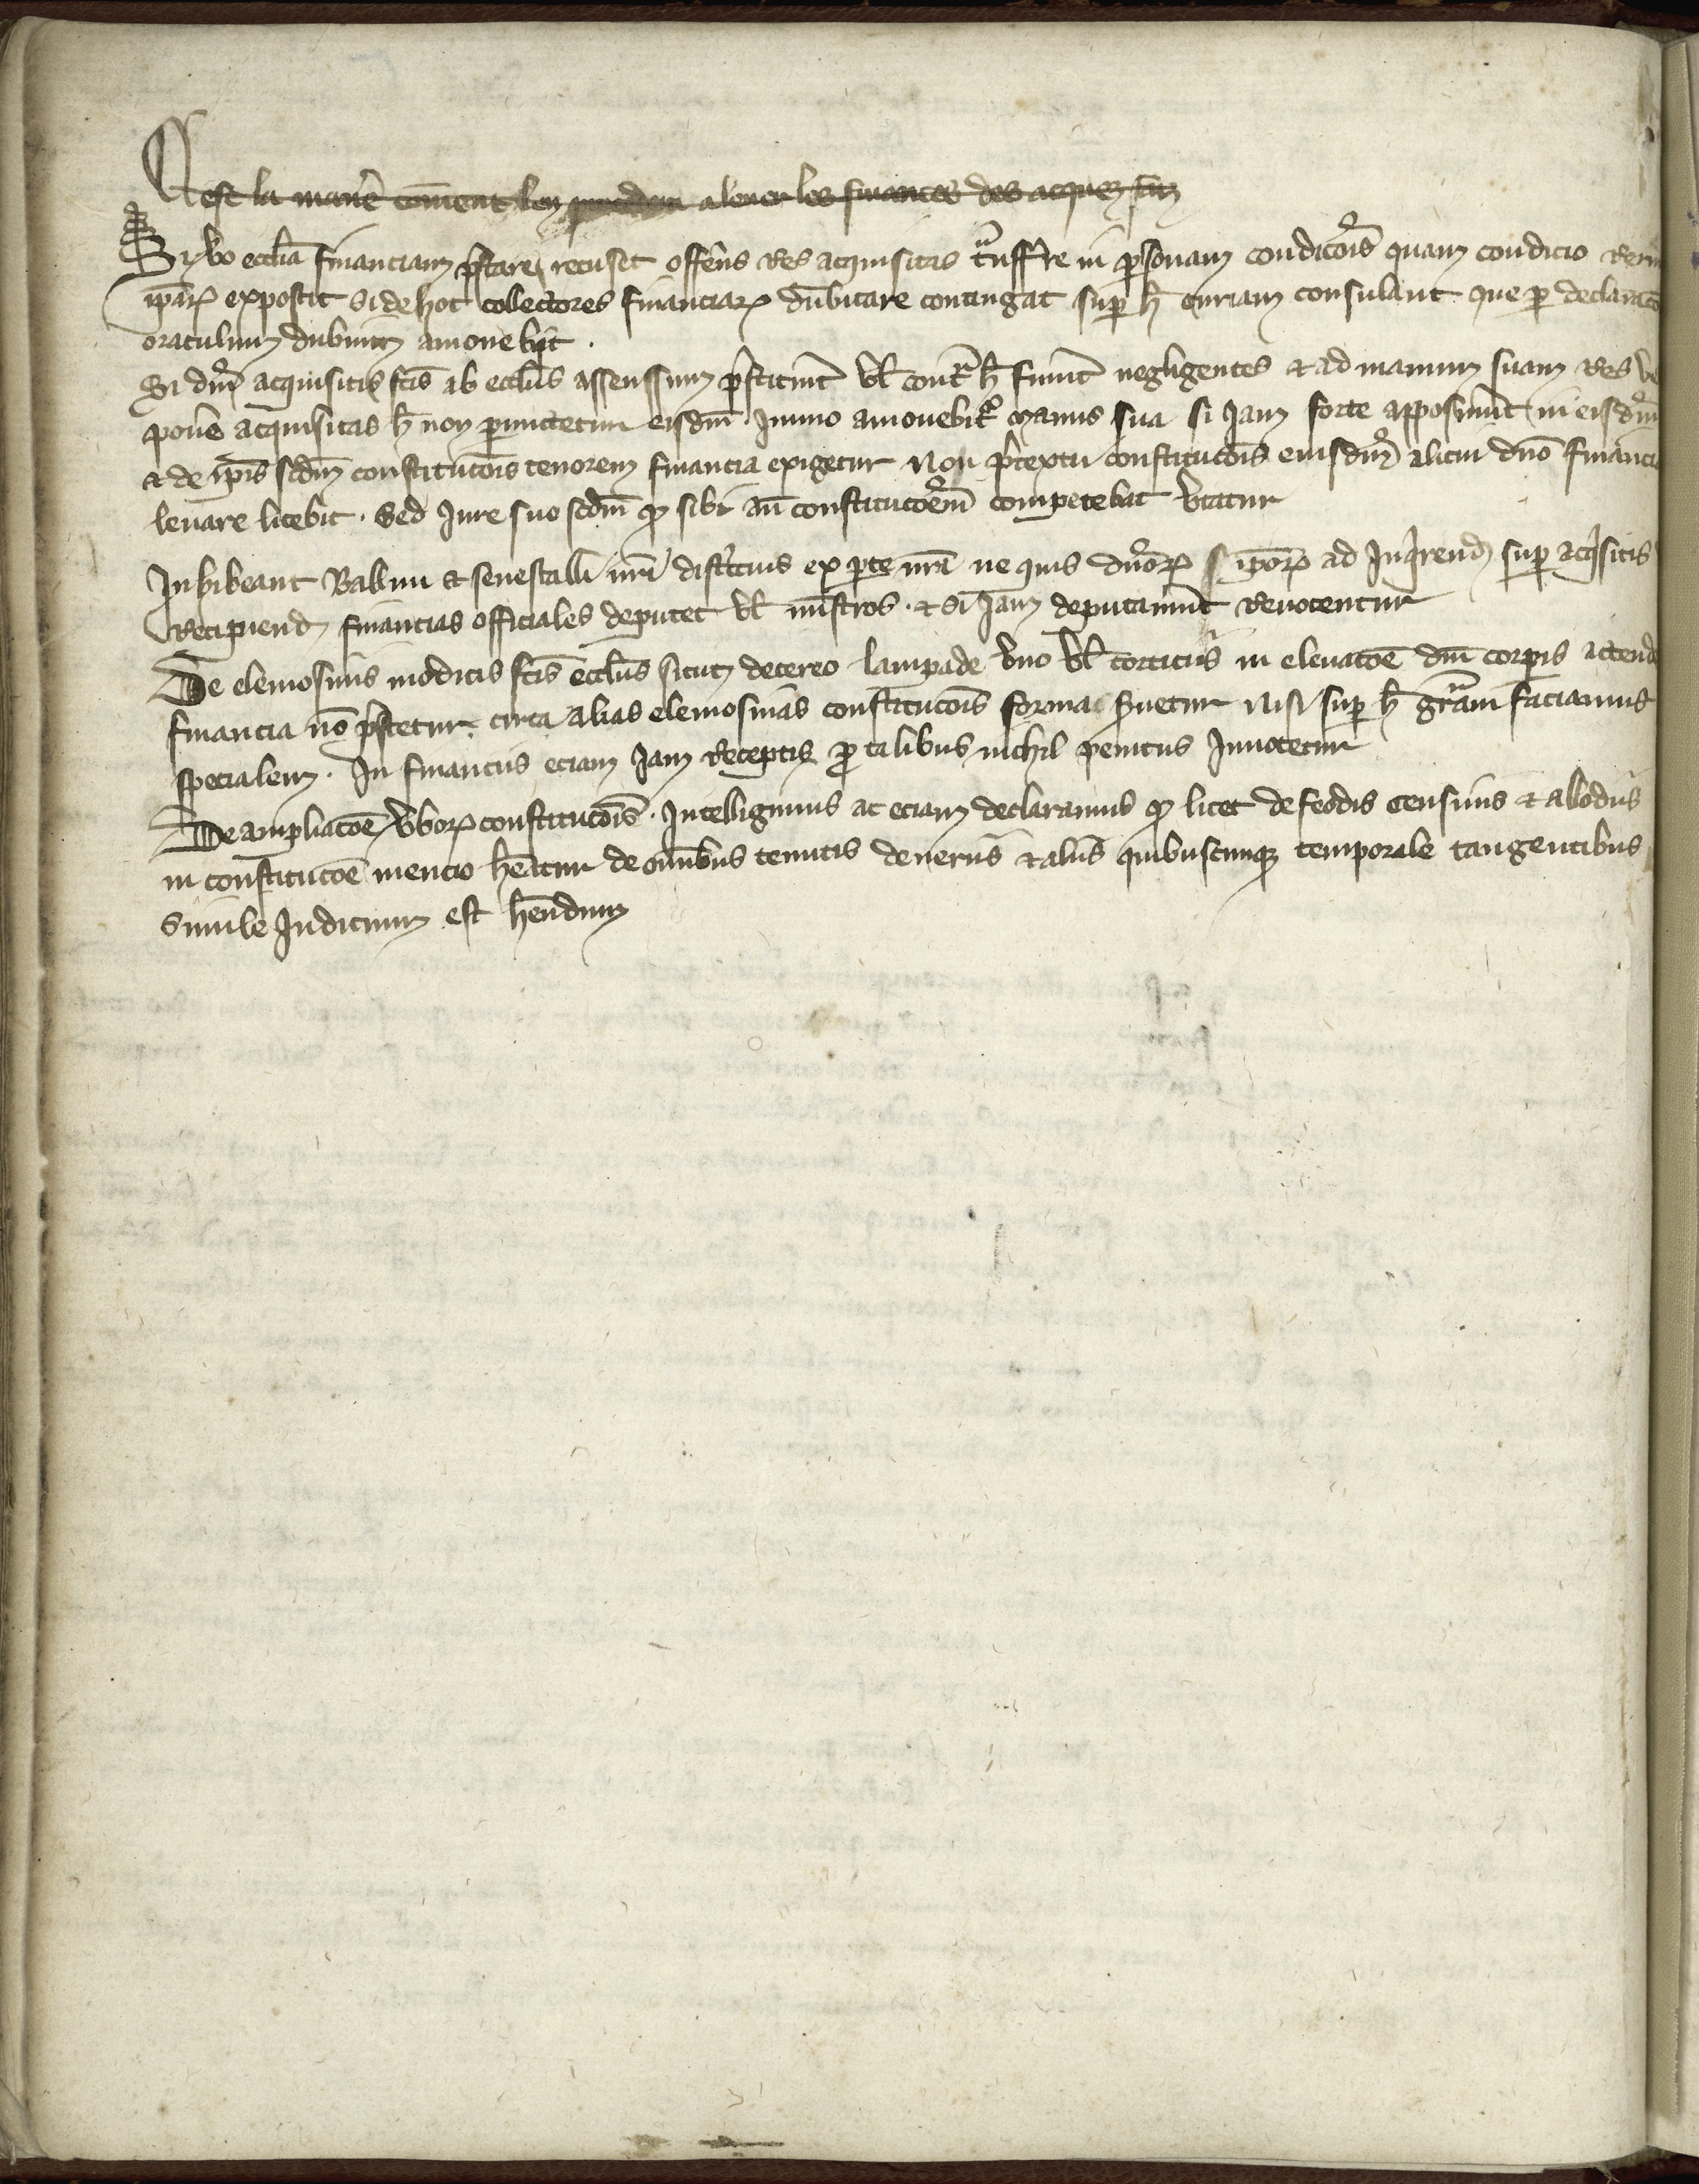 Cest la manie coment len procedera a lever les finances des acquez faiz
Si vo ecclia financiam pstare recuset offens res acquisitas tnsffre in psonam condicois quam condicio rerum
ipar exposcit Si de hoc collectores financiar dubitare contingat sup h curiam consulant que p declaracois
oraculum dubium amovebit .
Si dni acquisitis fcis ab ecclis assenssum pstiterint vl contra h fuerint negligentes et ad manum suam res
pone acquisitas h non permittetur eisdem . Immo amovebitr manus sua si Jam forte apposuerint in eisdem
et de ipis scdm constitucois tenorem financia exigetur Non ptextu constitucois eiusdem alicui dno financia
levare licebit . Sed Jure suo scdm q sibi an constitucoem competebat utatur
Inhibeant Ballivi et senescalli nri districtius ex pte nra ne quis dnor ipor ad Inqrend sup acqsitis
Recipiend financias officiales deputet vl mistros . et Si Jam deputarunt Revocentur
De elemosinis modicis fcis ecclis sicut de cereo lampade uno vl torticiis in elevacoe dni corpis
financia no pstetur . circa alias elemosinas constitucois forma svetur nisi sup h gram faciamus
specialem . In financiis eciam Jam Receptis p talibus nichil penitus Innovetur
De ampliacoe vbor constitucois . Intelligimus ac eciam declaramus q licet de feodis censivis et allodiis
in constitucoe mencio heatur de omibus tenutis deneriis et aliis quibuscumq temporale tangentibus
Simile Judicium est hendum